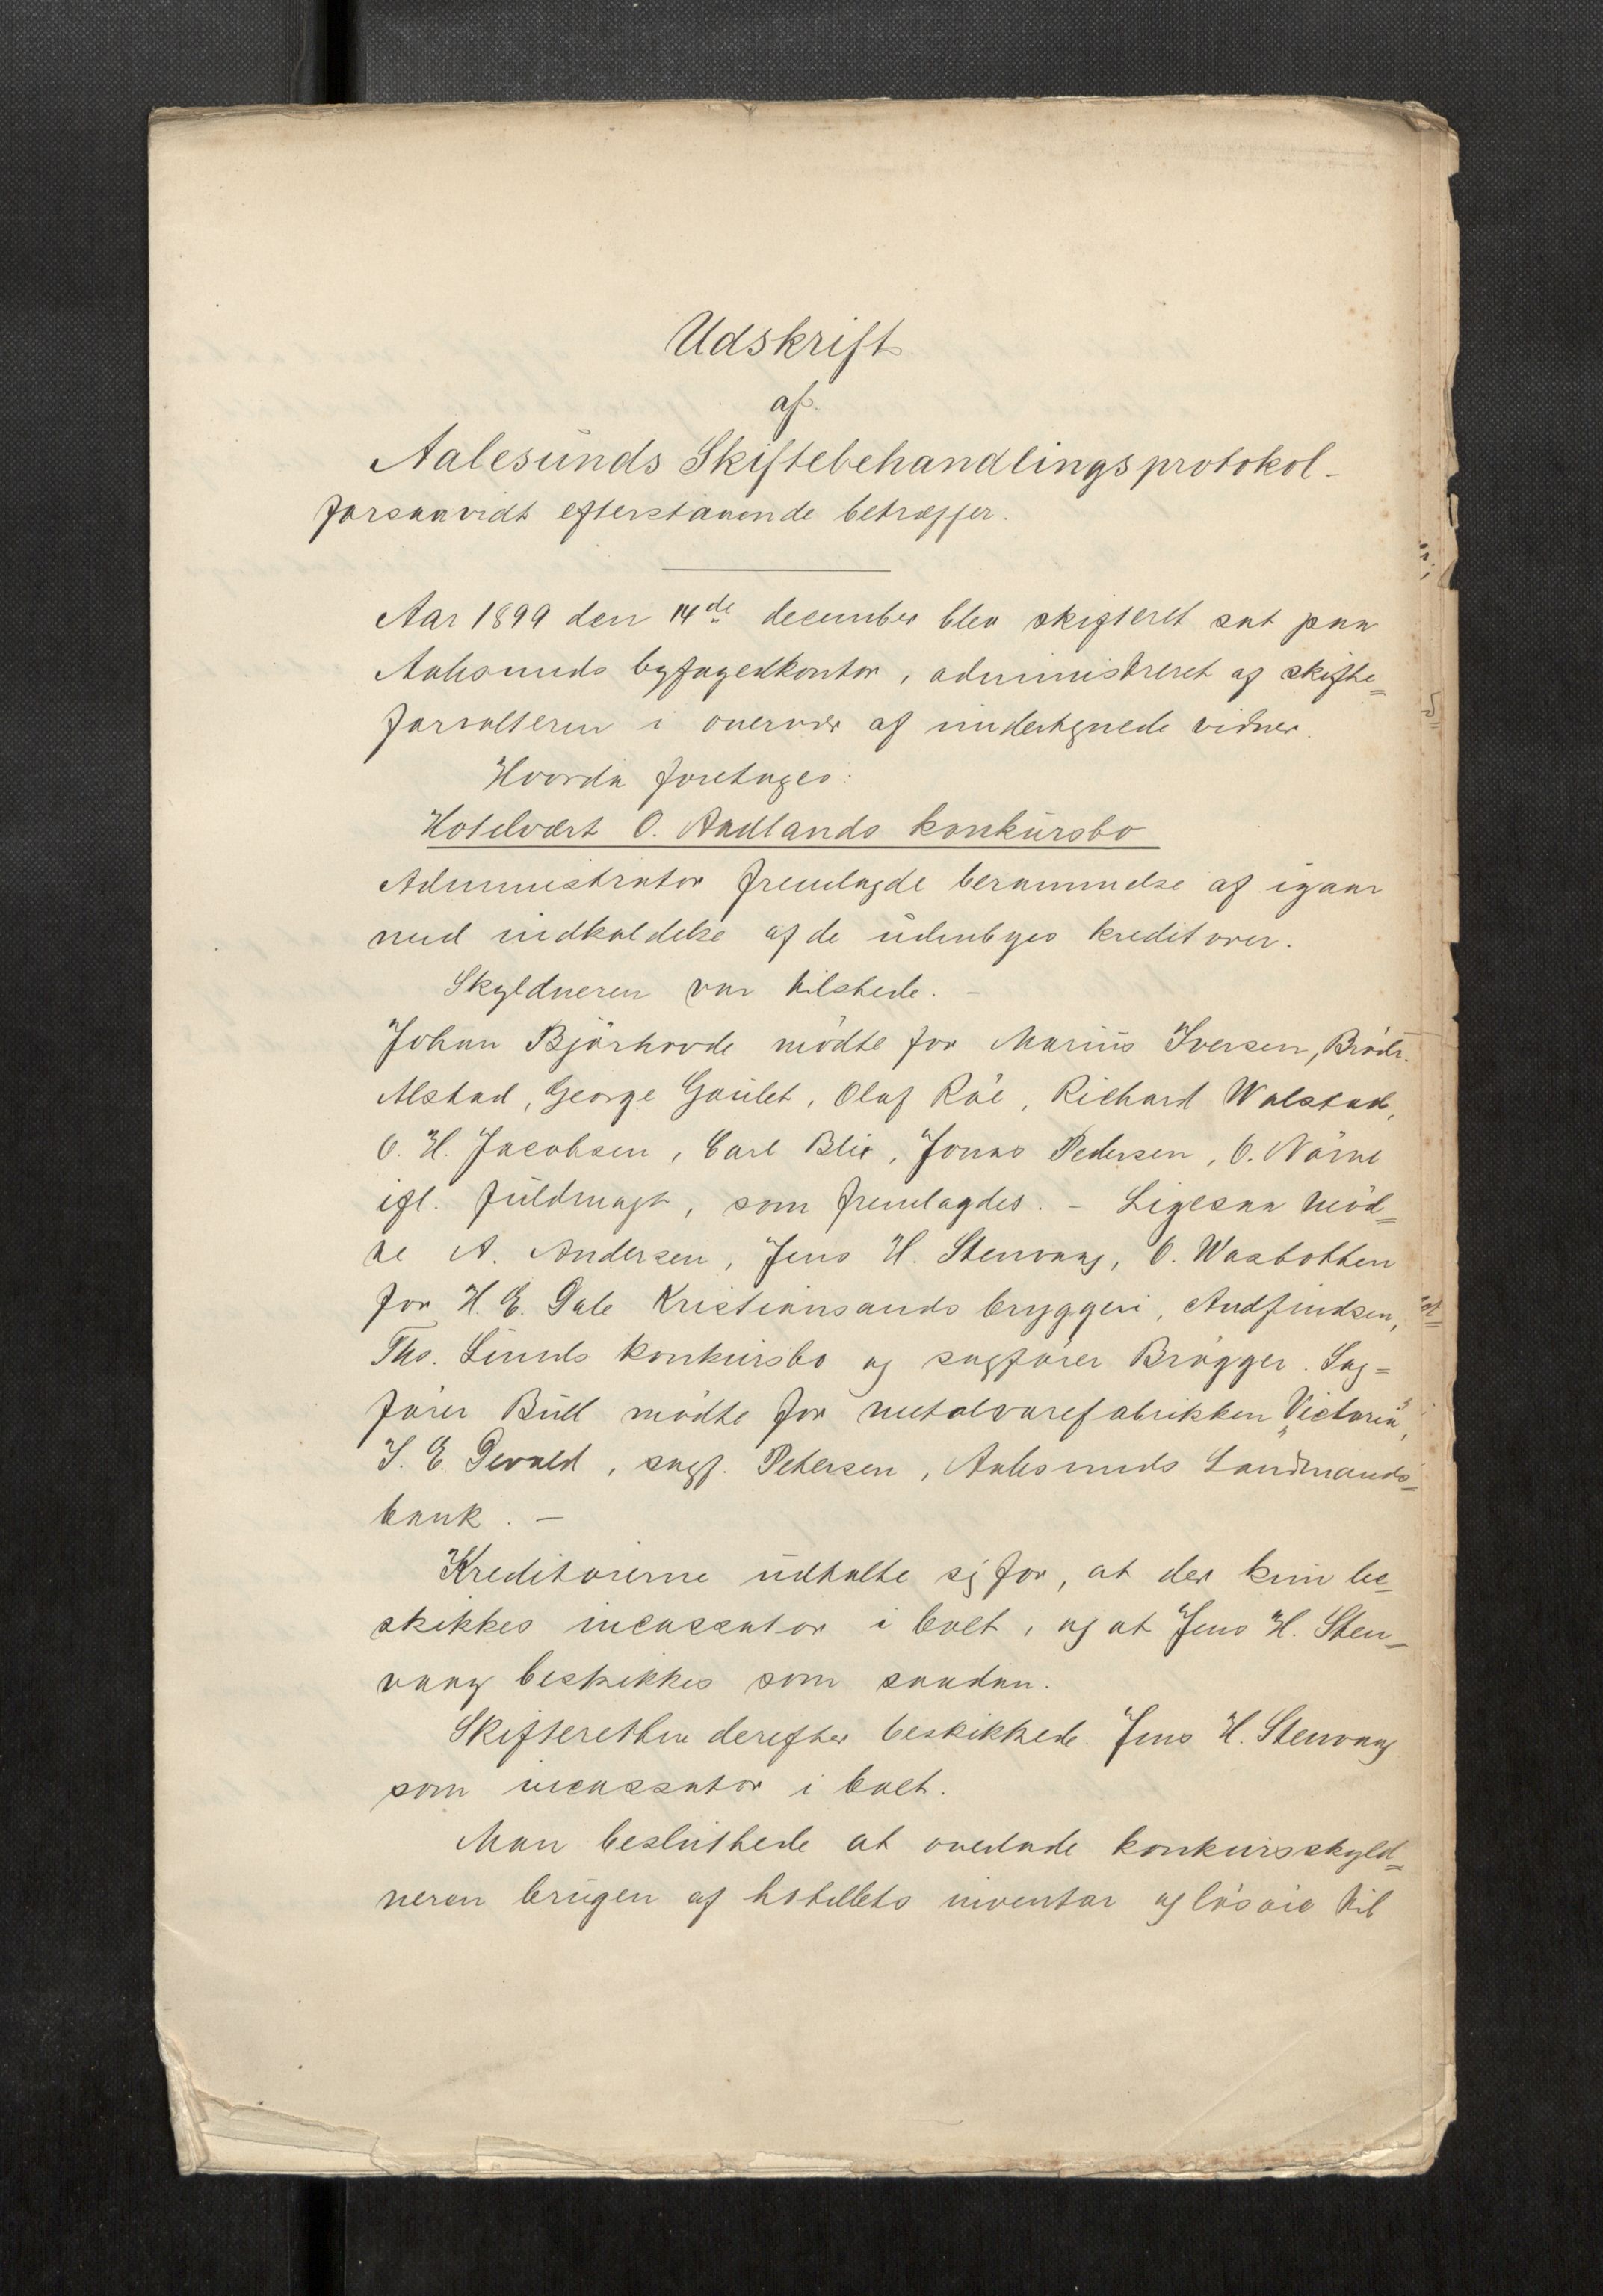 Udskrift
af
Aalesunds Skiftebehandlingsprotokol -
forsaavidt efterstaaende betræffer.
Aar 1899 den 14de december blev skifteret sat paa
Aalesunds byfogedkontor, administreret af skifte=
forvalteren i overvær af undertegnede vidner.
Hvorda foretages:
Hotelvært O. Aadlands konkursbo
Administrator fremlagde berammelse af igaar
med indkaldelse af de udenbyes kreditorer.
Skyldneren var tilstede. -
Johan Bjørhovde mødte for Marius Iversen, Brødr.
Alstad, George Goulet, Olaf Røe, Richard Walstad,
O. H. Jacobsen, Carl Blix, Jonas Pedersen, O. Nørve
ifl. fuldmagt, som fremlagdes. - Ligesaa mød=
te A. Andersen, Jens H. Stenvaag, O. Wasbotten
for H. E. Dale Kristiansands bryggeri, Andfindsen,
Ths. Linds konkursbo og sagfører Brøgger. Sag=
fører Bull mødte for metalvarefabrikken "Victoria",
I. E. Devold, sagf. Petersen, Aalesunds Landmands=
bank. -
Kreditorerne udtalte sig for, at der kun be=
skikkes incassator i boet, og at Jens H. Sten=
vaag beskikkes som saadan.
Skifteretten derefter beskikkede Jens H. Stenvaag
som incassator i boet.
Man besluttede at overlade konkursskyld=
neren brugen af hotellets inventar og løsøre til